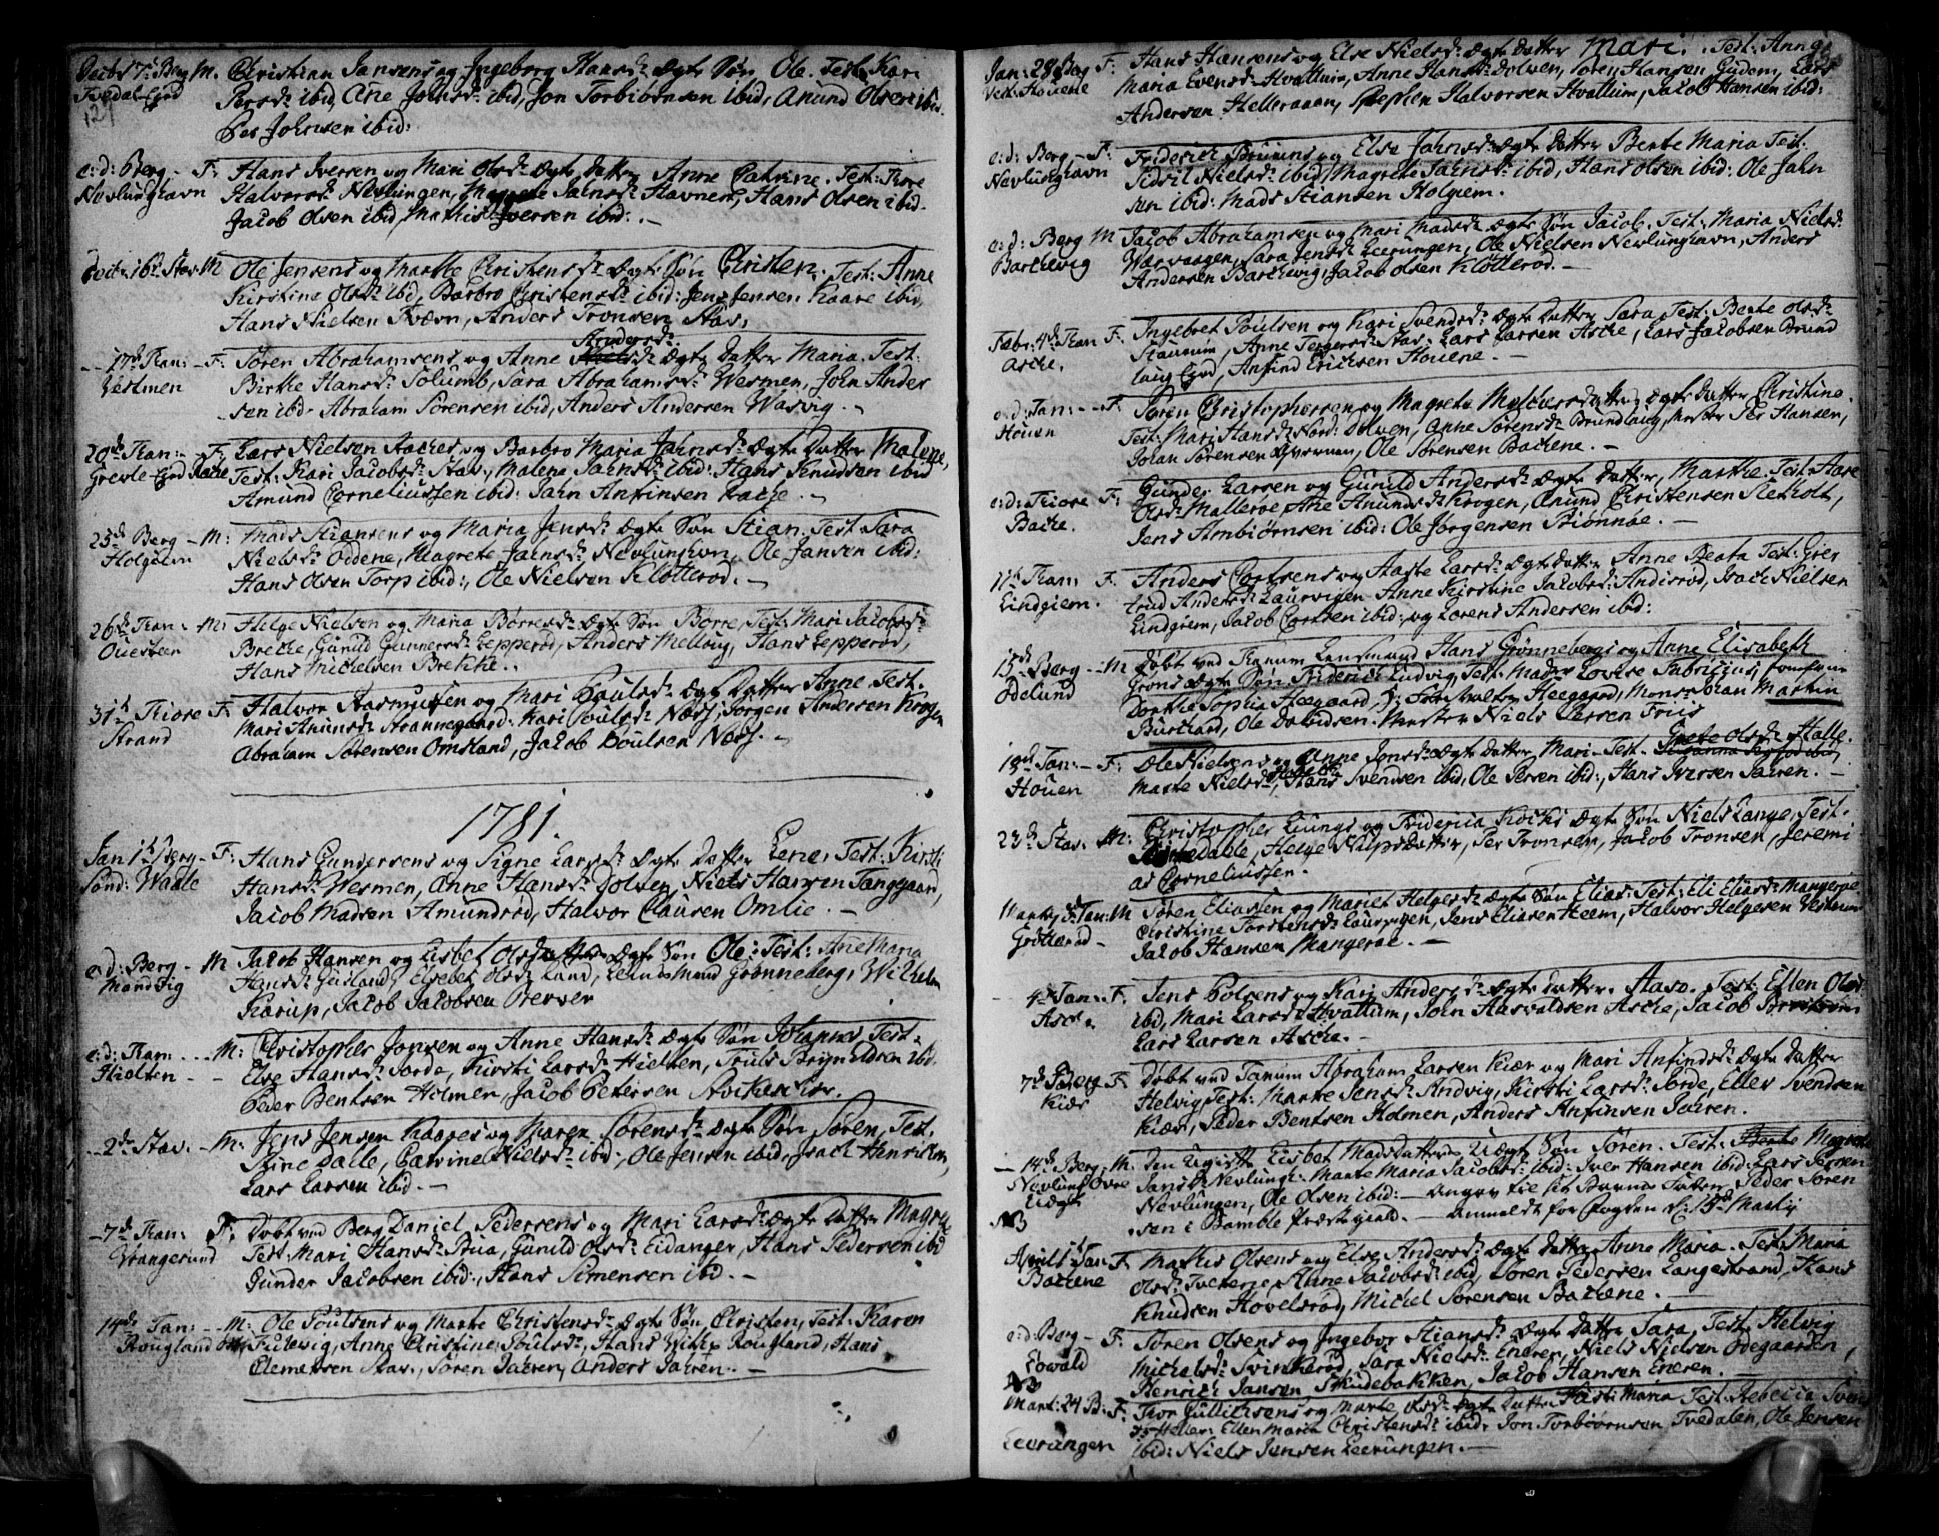 Decbr 7de Berg M. Christian Jansens og Ingeborg Hansd: Ægte Søn Ole. Test: Kari
Tvedal Ejed Persd: ibid, Ane Johnsd: ibid, Jon Torbiörnsen ibid, Anund Olsen ibid.
Per Johnsen ibid:
e:d: Berg - F: Hans Iversen og Mari Olsd: Ægte Datter Anne Catrine. Test: Tore
Nevlunghavn Halvorsd: Nevlungen, Magrete Jahnsd: Havnen, Hans Olsen ibid.
Jacob Olsen ibid, Mathis Iversen ibid: -
16de Stav. M Ole Jensens og Marthe Christensd: Ægte Søn Christen. Test: Anne
Kirstine Olsd: ibid, Barbro Christensd: ibid: Jens Jensen Kaare ibid,
Hans Nielsen Qværn, Anders Tronsen Stav.
Andersd:
17de Tan: - F: Søren Abrahamsens og Anne Ægte Datter Maria. Test:
Vesmen Birthe Hansd: Solumb, Sara Abrahamsd: Wesmen, John Ander
sen ibid. Abraham Sørensen ibid, Anders Andersen Wasvig. -
20de Tan: - F. Lars Nielsen Aaches og Barbro Maria Jahnsd: Ægte Datter Malene,
Grevle Ejed Aache Test: Kari Jacobsd: Stav:, Malena Jahnsd: ibid: Hans Knudsen ibid
Amund Corneliussen ibid: Jahn Anfinsen Aache. -
25de Berg - M: Mads Stiansens og Maria Jensd: Ægte Søn Stian. Test: Sara
Holgiem Nielsd: Oddene, Magrete Jahnsd: Nevlunghvn, Ole Jansen ibid:
Hans Olsen Torp ibid:, Ole Nielsen Klotterød. -
26de Tan: - M: Helge Nielsen og Maria Børresd: Ægte Søn Børre, Test: Mari Jacobsd:
Questeen Breche, Gunild Gunnersd: Lepperød, Anders Melbuy, Hans Lepperød,
Hans Michelsen Brekke. -
31te Kiose F. Halvor Aasmunsen og Mari Poulsd: Ægte Datter Anne Test:
Strand Mari Amunsd: Strannegaard: Kari Poulsd: Næss, Jørgen Andersen Krogen
Abraham Sørensen Omsland, Jacob Poulsen Næss. -
1781.
Jan 1te Berg - F: Hans Gundersens og Signe Larsd: Ægte Datter Lene, Test: Kirsti
Sønd: Waale Hansd: Wesmen, Anne Hansd: Dolven, Niels Hansen Tanggaard,
Jacob Madsen Amundrød, Halvor Clausen Omlie. -
e:d: Berg - M Jacob Hansen og Lisbet Olsdatter Ægte Søn Ole: Test: Ane Maria
Mandvig Hansd: Guslands, Elsebet Olsd: Land, Lendsmand Grønneberg, Wilhelm
Karup, Jacob Jacobsen Berver
e:d: Tan: - - M: Christopher Jonsen og Anne Hansd: Ægte Søn Johannes Test:
Hielten - - Else Hansd: Jorde, Kirsti Larsd: Hielten, Truls Brynildsen ibid.
Peder Bentsen Holmen, Jacob Petersen Aviksechier.
2de Stav. - M: Jens Jensen Kaares og Maren Sørensd: Ægte Søn Søren, Test:
Stine Dalle, Catrine Nielsd: ibid:, Ole Jensen ibid, Isach Henrichsen,
Lars Larsen ibid. -
7de Tan: F: Døbt ved Berg Daniel Pedersens og Mari Larsd: Ægte Datter Magrete
Vrangesund Test: Mari Hansd: Bua, Gunild Olsd: Eidanger, Hans Pedersen ibid
Gunder Jacobsen ibid:, Hans Simensen ibid. -
14de Tan: - M: Ole Poulsens og Marte Christensd: Ægte Søn, Christen, Test: Karen
Rougland Fulewig, Anne Christine Poulsd:, Hans Rougland, Hans
Clemetsen Stav., Søren Jahren, Anders Jahren. -
Jan: 28 Berg F: Hans Hansens og Else Nielsd: Ægte Datter Mari. Test: Anne
Vest: Houene Maria Evensd: Hvattum, Anne Hansd: Dolven, Søren Hansen Gudem, Lars
Andersen Helleraaen, Stephen Halvorsen Hvattum, Jacob Hansen ibid:
e:d: Berg - F: Friderich Bruuns og Else Jahnsd: Ægte Datter Bente Maria Test:
Nevlunghavn Sidsel Nielsd: ibid, Magrete Jahnsd: ibid, Hans Olsen ibid: Ole Jahn
sen ibid: Mads Stiansen Holgiem.
e:d: Berg M Jacob Abrahamsen og Mari Madsd: Ægte Søn Jacob. Test: Maria Nielsd:
Barthevig Warvaagen, Sara Jensd: Leerungen, Ole Nielsen Nevlunghavn, Anders
Andersen Barthevig, Jacob Olsen Klotterød. -
Febr: 4de Tan F: Ingebret Poulsen og Kari Svendsd: Ægte Datter Sara, Test: Bente Olsd:
Asche. Staurum, Anne Torgersd: Stav: Lars Larsen Asche, Lars Jacobsen Brund
laug Ejed, Anfind Erichsen Houene. -
e:d: Tan: - F Søren Christophersen og Magrete Meltiersdatters Ægte Datter Christine.
Houen Test: Mari Hansd: Nord: Dolven, Anne Sørensd: Brundlaug, Mester Per Hansen,
Johan Sørensen, Ole Sørensen Bachene. -
e:d: Kiose F: Gunder Larsen og Gunild Andersd: Ægte Datter, Marthe. Test: Aase
Bache. Olsd: Mallerøe, Ane Amundsd: Krogen, Anund Christensen Sletholt,
Jens Ambiørnsen ibid: Ole Jørgensen Stiønnøe. -
11te Tan F. Anders Corfsens og Aaste Larsd: Ægte Datter Anne Beata Test: Gier
Lindgiem. trud Andersd: Laurvigen Anne Kirstine Jacobsd: Anderrød, Isach Nielsen
Lindgiem, Jacob Corfsen ibid:, og Lorens Andersen ibid:
15de Berg - M Døbt ved Tanum Lensmand Hans Grønnebergs og Anne Elisabeth
Ødelund Grøns Ægte Søn Friderich Ludvig, Test: Mad: Lovise Fabricius, Jomfrue
Dorthe Sophia Heegaard, Hr: Forvalter Heegaard, Monsr: Jean Martin
Burchard, Ole Davidsen: Mester Niels Larsen Friis
Grete Olsd: Halle.
18de Tan: - F: Ole Nielsens og Anne Jonsd: Ægte Datter, Mari - Test.
Houen Marte Nielsd:, Hans Svensen ibid, Ole Persen ibid:, Hans Iversen Jahren. -
23de Stav. M: Christopher Liungs og Friderica Kochs Ægte Søn Niels Lange, Test:
Stine Dalle, Helge Nilsdatter, Per Tronsen, Jacob Tronsen, Jeremi
as Corneliussen.
Marty 4de Tan: M Søren Eliassen og Maries Helgesd: Ægte Søn Elias: Test: Eli Eliasd: Mangerøe
Grøtterød - Christine Torstensd: Laurvigen, Jens Eliasen Heem, Halvor Helgesen Vesteraae
Jacob Hansen Mangerøe. -
4de Tan: F. Jens Polsens og Kari Andersd: Ægte Datter. Aase. Test: Ellen Olsd:
Asch. ibid, Mari Larsd: Hvattum, John Aasvaldsen Asche, Jacob
Lars Larsen Asche. -
7de Berg F: Døbt ved Tanum Abraham Larsen Kiær og Mari Anfindsd: Ægte Datter
Kiær Helvig, Test: Marte Jensd: Andvig, Kirsti Larsd: Jorde, Ellev Svendsen
Kiær, Peder Bentsen Holmen, Anders Anfinsen Jahren.
14de Berg - M. Den Ugifte Lisbet Madsdatters Uægte Søn Søren. Test: Magrete
Nevlung Ovre Jansd: Nevlung: Marte Maria Jacobsd: ibid: Iver Hansen ibid: Lars Persen
Uægte Nevlungen, Ole Olsen ibid: - Angav til sit Barns Fader Peder Søren
NB sen i Bamble Præstegield. - Anmeldt for Fogden d: 15de Marty
April 1te Tan F Mathis Olsens og Else Andersd: Ægte Datter Anne Maria. Test: Maria
Bachene Olsd: Tveterøe, Anne Jacobsd: ibid, Søren Pedersen Langestrand, Hans
Knudsen Hovelsrød, Michel Sørensen Bachene. -
e:d: Berg - F: Søren Olsens og Ingebor Stiansd: Ægte Datter Sara, Test: Helvig
Eowald Michelsd: Svinkerød, Sara Nielsd: Eneren, Niels Nielsen Ødegaarden,
NB Henrich Jansen, Skudebakken, Jacob Hansen Eneren.
Mart: 24 B: F: Tor Gullichsens og Marte Olsd: Ægte Datter Kirsti Maria Test: Rebecca Svend
sd: Heller: Ellen Maria Christensd: ibid: Jon Torbiørnsen Tvedalen, Ole Jensen
Leerungen ibid: Niels Jensen Leerungen. -